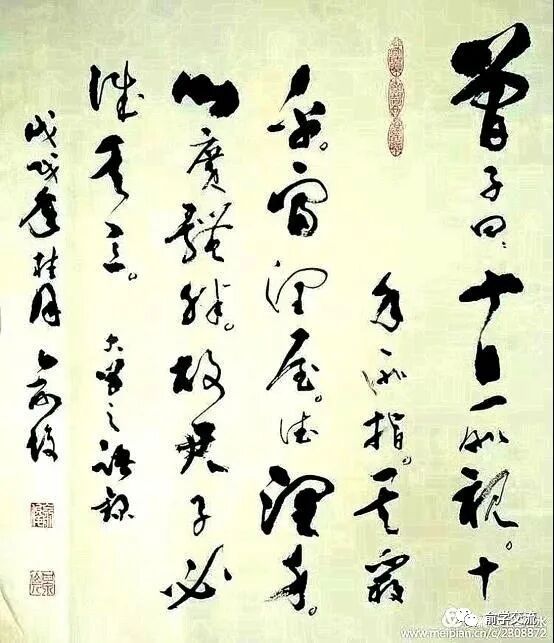 曾子曰：十目所視。十
手所指。其嚴
乎。富潤屋。德潤身。
心廣體胖。故君子必
誠其意。大學之語錄
戊戌年桂月
俞学交流